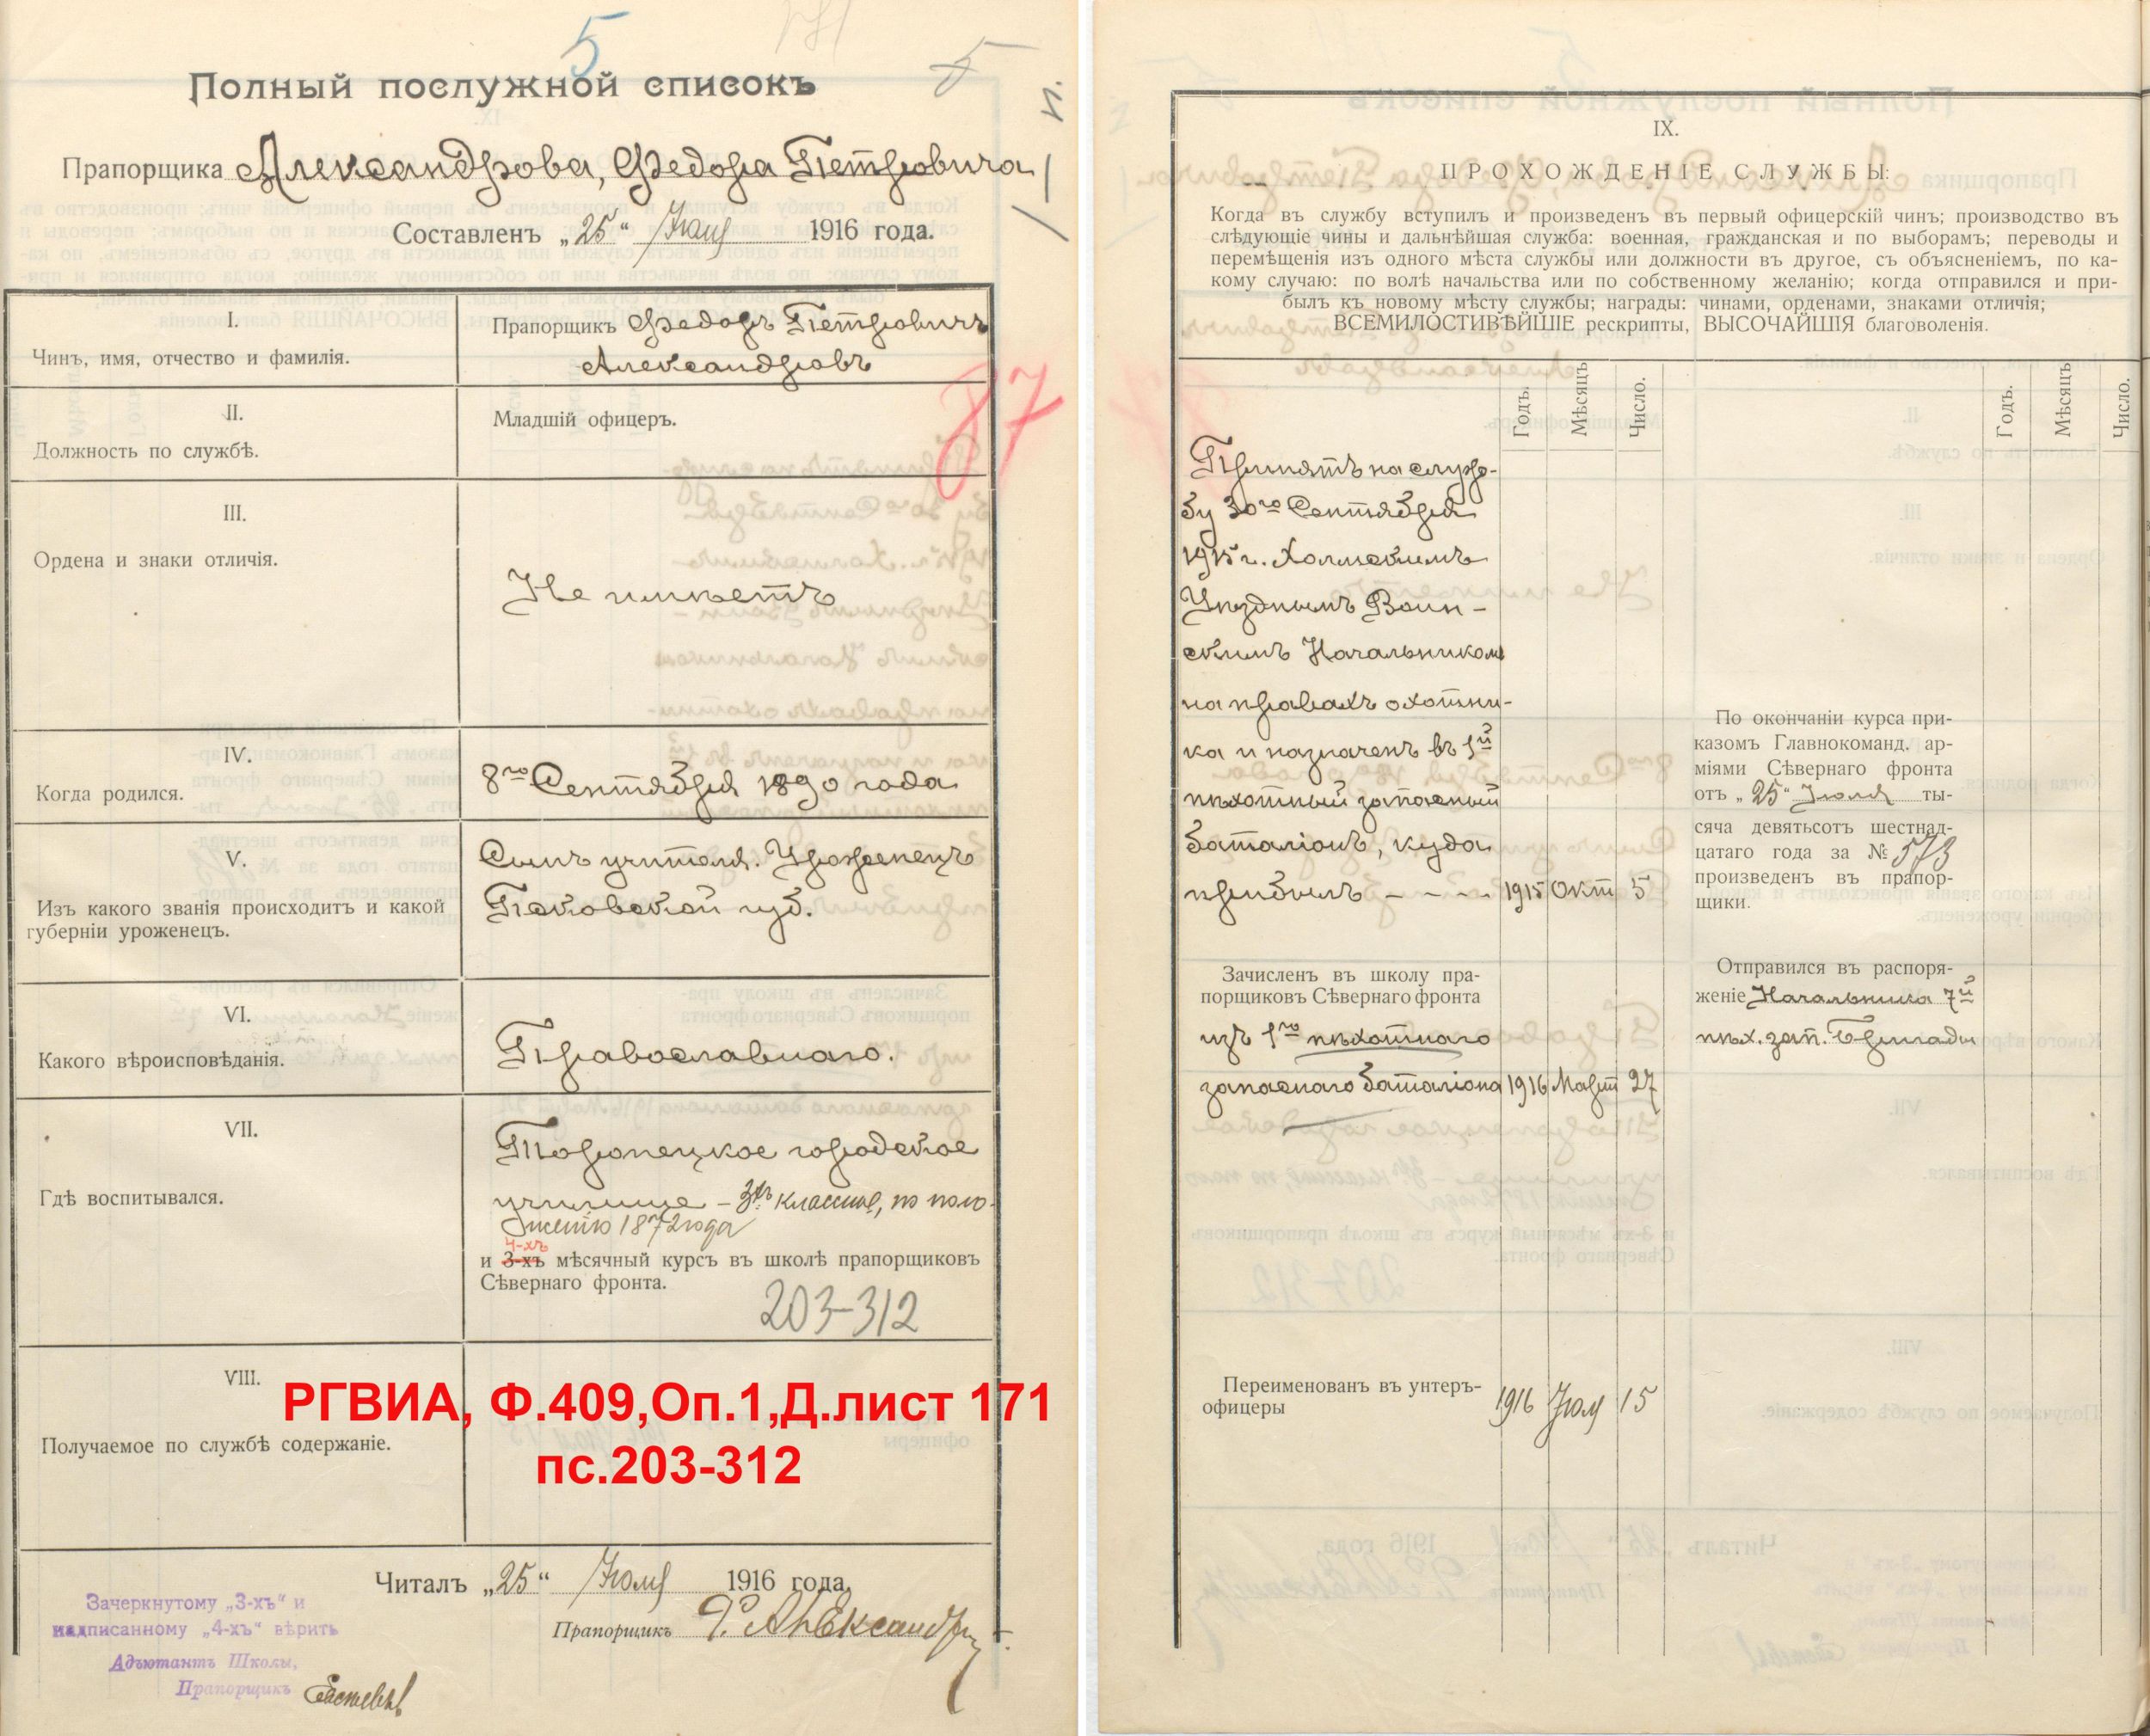 5
171
5
1 п.
Полный послужной списокъ
Прапорщика Александрова, Федора Петровича
Составленъ „25“ Іюля 1916 года.
I.
Чинъ, имя, отчество и фамилія.
Прапорщикъ Федоръ Петровичъ
Александровъ
87
II.
Должность по службѣ.
Младшій офицеръ.
III.
Ордена и знаки отличія.
Не имѣетъ
IV.
Когда родился.
8го Сентября 1890 года
V.
Изъ какого званія происходитъ и какой
губерніи уроженецъ.
Сынъ учителя. Уроженецъ
Псковской губ.
VI.
Какого вѣроисповѣданія.
Православнаго.
VII.
Гдѣ воспитывался.
Торопецкое городское
училище – 3хъ классное, по поло-
женію 1872 года
4-хъ
и 3-хъ мѣсячный курсъ въ школѣ прапорщиковъ
Сѣвернаго фронта.
203-312
VIII.
Получаемое по службѣ содержаніе.
РГВИА, Ф.409,Оп.1,Д.лист 171
пс.203-312
Читалъ „25“ Іюля 1916 года.
Прапорщикъ Ф. Александров
Зачеркнутому „3-хъ“ и
надписанному „4-хъ“ вѣрить
Адъютантъ Школы,
Прапорщикъ
IX.
ПРОХОЖДЕНІЕ СЛУЖБЫ:
Когда въ службу вступилъ и произведенъ въ первый офицерскій чинъ; производство въ
слѣдующіе чины и дальнѣйшая служба: военная, гражданская и по выборамъ; переводы и
перемѣщенія изъ одного мѣста службы или должности въ другое, съ объясненіемъ, по ка-
кому случаю: по волѣ начальства или по собственному желанію; когда отправился и при-
былъ къ новому мѣсту службы; награды: чинами, орденами, знаками отличія;
ВСЕМИЛОСТИВѢЙШІЕ рескрипты, ВЫСОЧАЙШІЯ благоволенія.
Годъ. Мѣсяцъ Число.
Принятъ на служ-
бу 30го Сентября
1915 г. Холмскимъ
Уѣзднымъ Воин-
скимъ Начальникомъ
на правахъ охотни-
ка и назначенъ въ 1й
пѣхотный запасный
баталіонъ, куда
прибылъ - - - - 1915 Окт 5
Зачисленъ въ школу пра-
порщиковъ Сѣвернаго фронта
изъ 1го пѣхотнаго
запаснаго баталіона 1916 Март 27
Переименованъ въ унтеръ-
офицеры 1916 Іюл 15
Годъ. Мѣсяцъ Число.
По окончаніи курса при-
казомъ Главнокоманд. ар-
міями Сѣвернаго фронта
отъ „25“ Іюля ты-
сяча девятьсотъ шестнад-
цатаго года за № 573
произведенъ въ прапор-
щики.
Отправился въ распоря-
женіе Начальника 7й
пѣх. зап. бригады